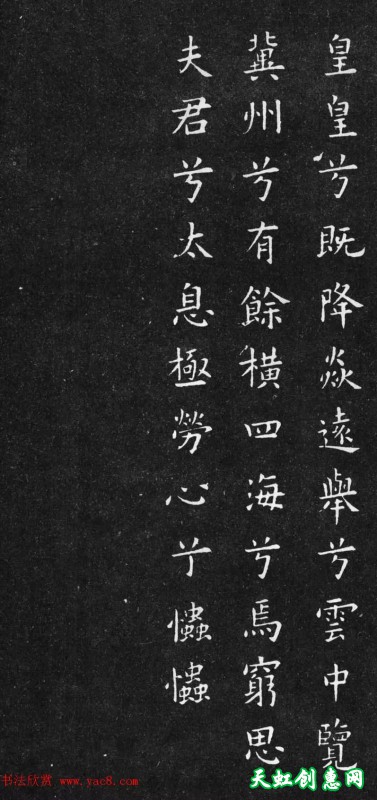 皇皇兮既降焱遠舉兮雲中覽
冀州兮有餘橫四海兮焉窮思
夫君兮太息極勞心兮𢥞𢥞
书法欣赏 www.yac8.com
天虹创惠网